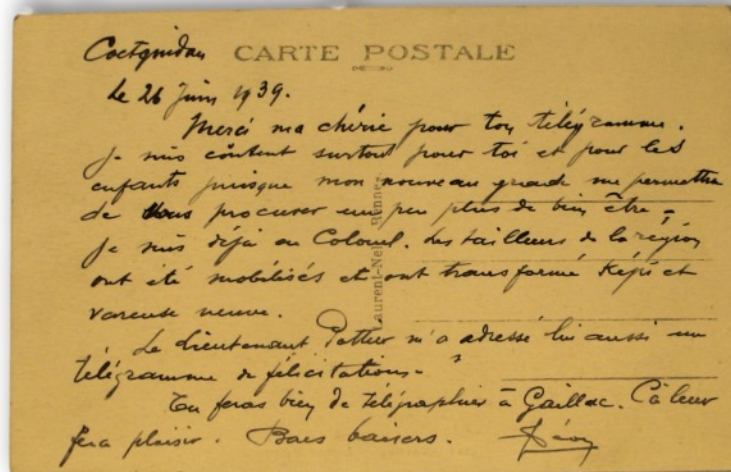 Coëtquidan CARTE POSTALE
Le 26 Juin 1939.
Merci ma chérie pour ton télégramme.
Je suis content surtout pour toi et pour les
enfants puisque mon nouveau grade me permettra
de vous procurer un peu plus de bien être.
Je suis déjà en Colonel. Les tailleurs de la région
ont été mobilisés et ont transformé Képi et
vareuse neuve.
Le Lieutenant m'a adressé lui aussi un
télégramme de félicitations.
Tu feras bien de télégraphier à Gaillac. Cà leur
fera plaisir. Bons baisers.
Laurent-Nel, Rennes